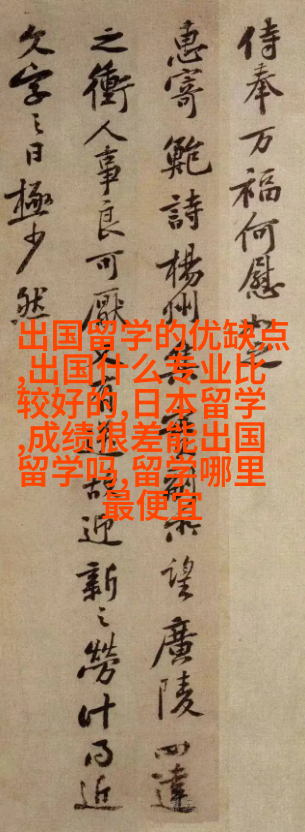 侍奉万福何慰如之
惠寄鲍詩楊州集
望廣陵四達
之衝人事良可厭又有送故迎新之勞计日近
欠字之日極少然
出国留学的优缺点
,出国什么专业比
较好的,日本留学
,成绩很差能出国
留学吗,留学哪里
最便宜